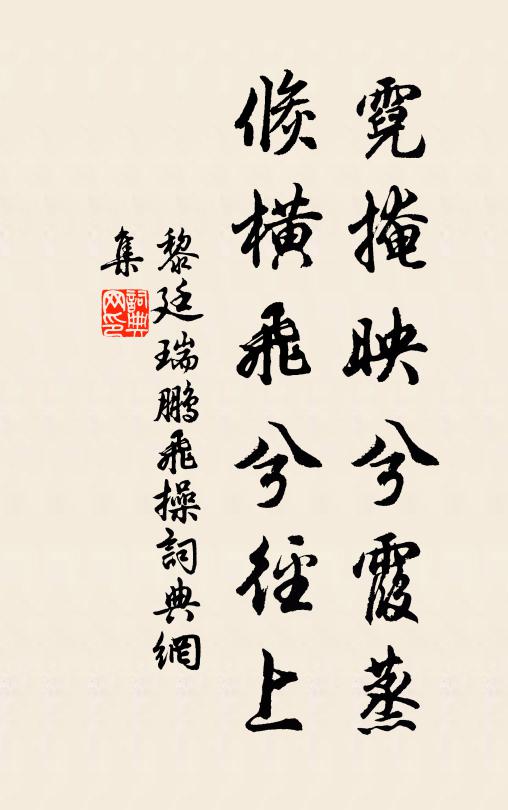 霓掩映兮霞蒸
倏橫飛兮徑上
黎廷瑞鵬飛操詞典網
集
詞典
网印